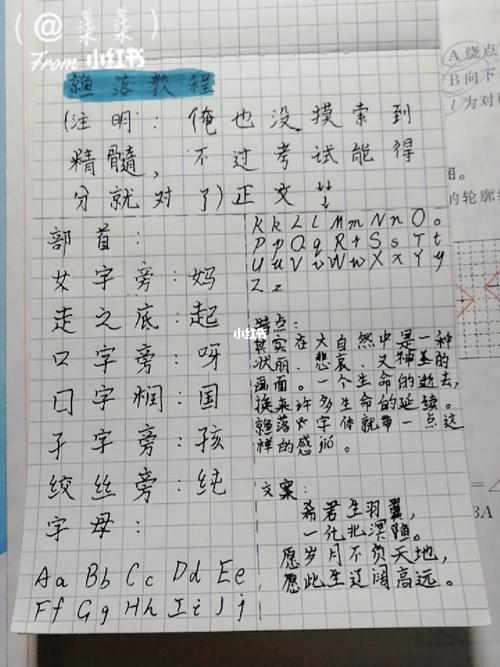 (@ 粜粜 )
From 小红书
鲸落教程
(注明:俺也没摸索到
精髓,不过考试能得
分就对了)正文↓↓
部首:
女字旁:妈
走之底:起
口字旁:呀
口字框:国
子字旁:孩
绞丝旁:纯
字母:
Aa Bb Cc Dd Ee
Ff Gg Hh Ii Jj
Kk Ll Mm Nn Oo
Pp Qq Rr Ss Tt
Uu Vv Ww Xx Yy
Zz
小红书
特点:
其实在大自然中是一种
状丽、悲哀、又神圣的
画面。一个生命的逝去,
换来许多生命的延续。
鲸落字体就带一点这
样的感觉。
文案:
希君生羽翼,
一化北溟鱼。
愿岁月不负天地,
愿此生辽阔高远。
A 绕点
B 向下
l 为对
的轮廓
3A